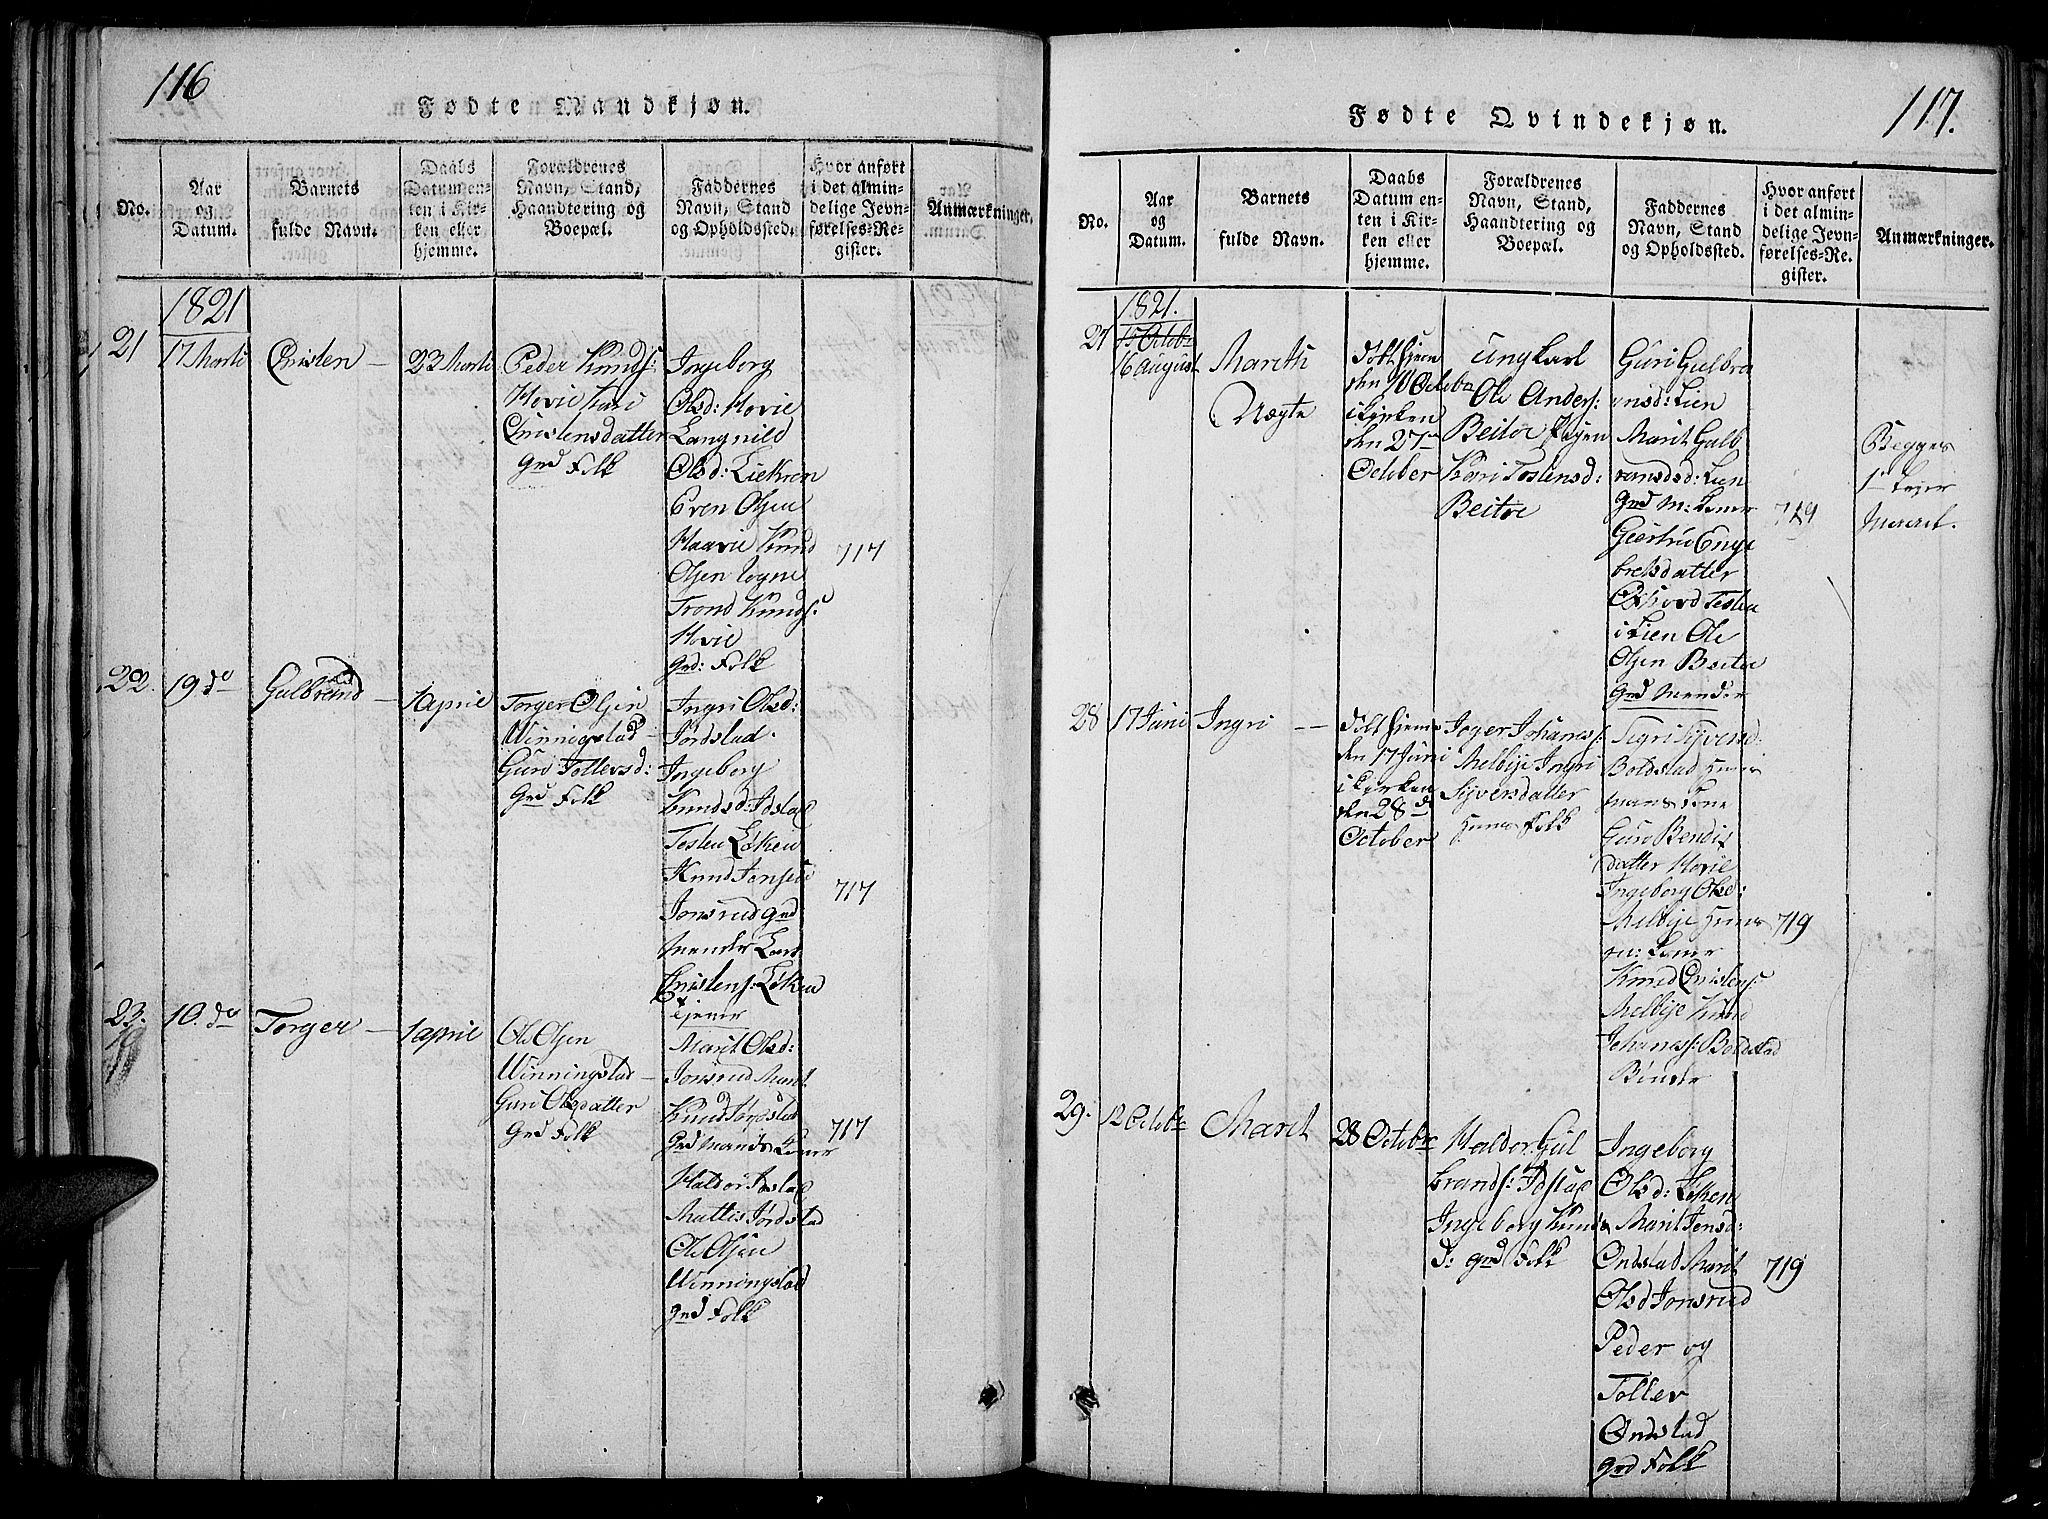 116
Fødte Mandkjøn.
No.
Aar
og
Datum.
Barnets
fulde Navn.
Daabs
Datum en-
ten i Kir-
ken eller
hjemme.
Forældrenes
Navn, Stand,
Haandtering og
Boepæl.
Faddernes
Navn, Stand
og Opholdssted.
Hvor anført
i det almin-
delige Jevn-
førelses-Re-
gister.
Anmærkninger.
1821
21
17 Marti
Christen —
23 Marti
Peder Knuds:
Hovie Kari
Christensdatter
Grd Folk
Ingeborg
Olsd: Hovie
Langnild
Olsd: Liekren
Even Olsen
Haavie Knud
Olsen
Trond Knuds:
Hovie
Grd: Folk
717
22.
19 do
Gulbrand —
1 April
Torger Olsen
Winnigstad —
Guri Tollersd:
Grd Folk
Ingri Olsd:
Jørdstad.
Ingeborg
Knudsd: Idstad
Tosten Løken
Knud Jonsen
Jonsrud Grd
Mender Lars
Christens: Løken
tjener
717
23.
10. do
Torger —
1 April
Ole Olsen
Winningstad —
Guri Olsdatter
Grd Folk
Marit Olsd:
Jonsrud Marit
Knud Jørdstad
Grd Mands Koner
Haldor Idstad
Mattis Jørdstad
Ole Olsen
Winningstad
Grd Folk
717
117.
Fødte Qvindekjøn.
No.
Aar
og
Datum.
Barnets
fulde Navn.
Daabs
Datum en-
ten i Kir-
ken eller
hjemme.
Forældrenes
Navn, Stand,
Haandtering og
Boepæl.
Faddernes
Navn, Stand
og Opholdssted.
Hvor anført
i det almin-
delige Jevn-
førelses-Re-
gister.
Anmærkninger.
1821.
27
15 Octobr
16 August
Mareth
Uægte
Døbt hjem
den 10 Octobr
i Kirken
den 27de
October
Ungkarl
Ole Anders:
Beitoe Pigen
Kari Tostensd:
Beitoe
Guri Gulbra
ndsd: Lien
Marit Gulb
randsd: Lien
Grd M: Koner
Geertrud Enge
bretsdatter
Tosten
i Lien Ole
Olsen Beitoe
Grd Mænder
719
Begges
1ste Lejer
Maael.
28
17 Juni
Ingri —
Døbt hjeme
den 17 Juni
i Kirken
den 28de
October
Joger Johanes:
Melbye Ingri
Syversdatter
Huus Folk
Sigri Syversd:
Boldstad Huus
Mans Kone
Guro Bendix
datter Hovie
Ingeborg Olsd:
Melbye Huus
m: Koner
Knud Christens:
Melbye Knud
Johaness: Boldstad
Bønder
719
29.
12 Octobr
Maret
28 Octobr
Haldor Gul
brands: Idstad
Ingeborg Knuds
d: Grd Folk
Ingeborg
Olsd: Løken
Marit Jensd:
Ondstad Marit
Olsd Jonsrud
Peder og
Toller
Ondstad
Grd Folk
719